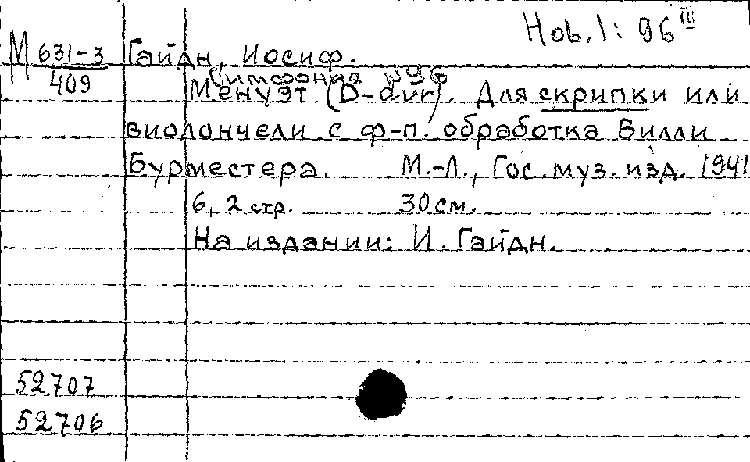 Hob. I: 96 III
М 631-3 Гайдн, Иосиф.
409 Симфония №96
Менуэт (D-dur). Для скрипки или
виолончели с ф-п. обработка Вилли
Бурместера. М.-Л., Гос. муз. изд. 1941
6, 2 стр. 30 см.
На издании: И. Гайдн.
52707
52706